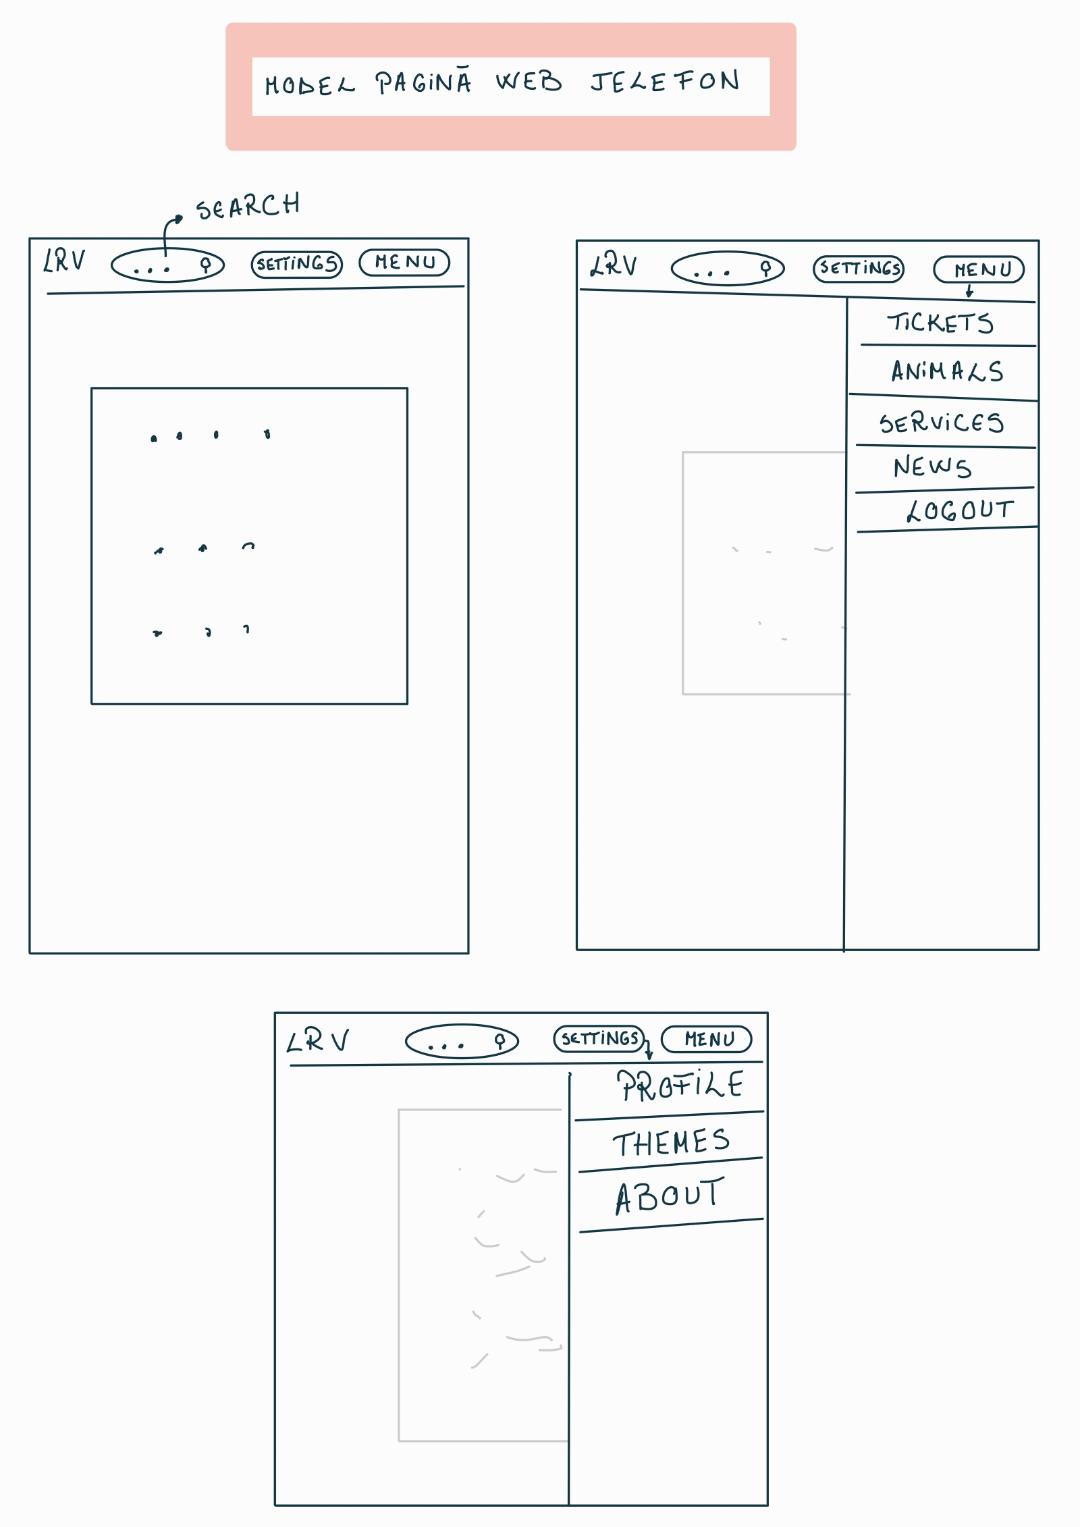 MODEL PAGINĂ WEB TELEFON
SEARCH
LRV ... SETTINGS MENU
LRV ... SETTINGS MENU
TICKETS
ANIMALS
SERVICES
NEWS
LOGOUT
LRV ... SETTINGS MENU
PROFILE
THEMES
ABOUT